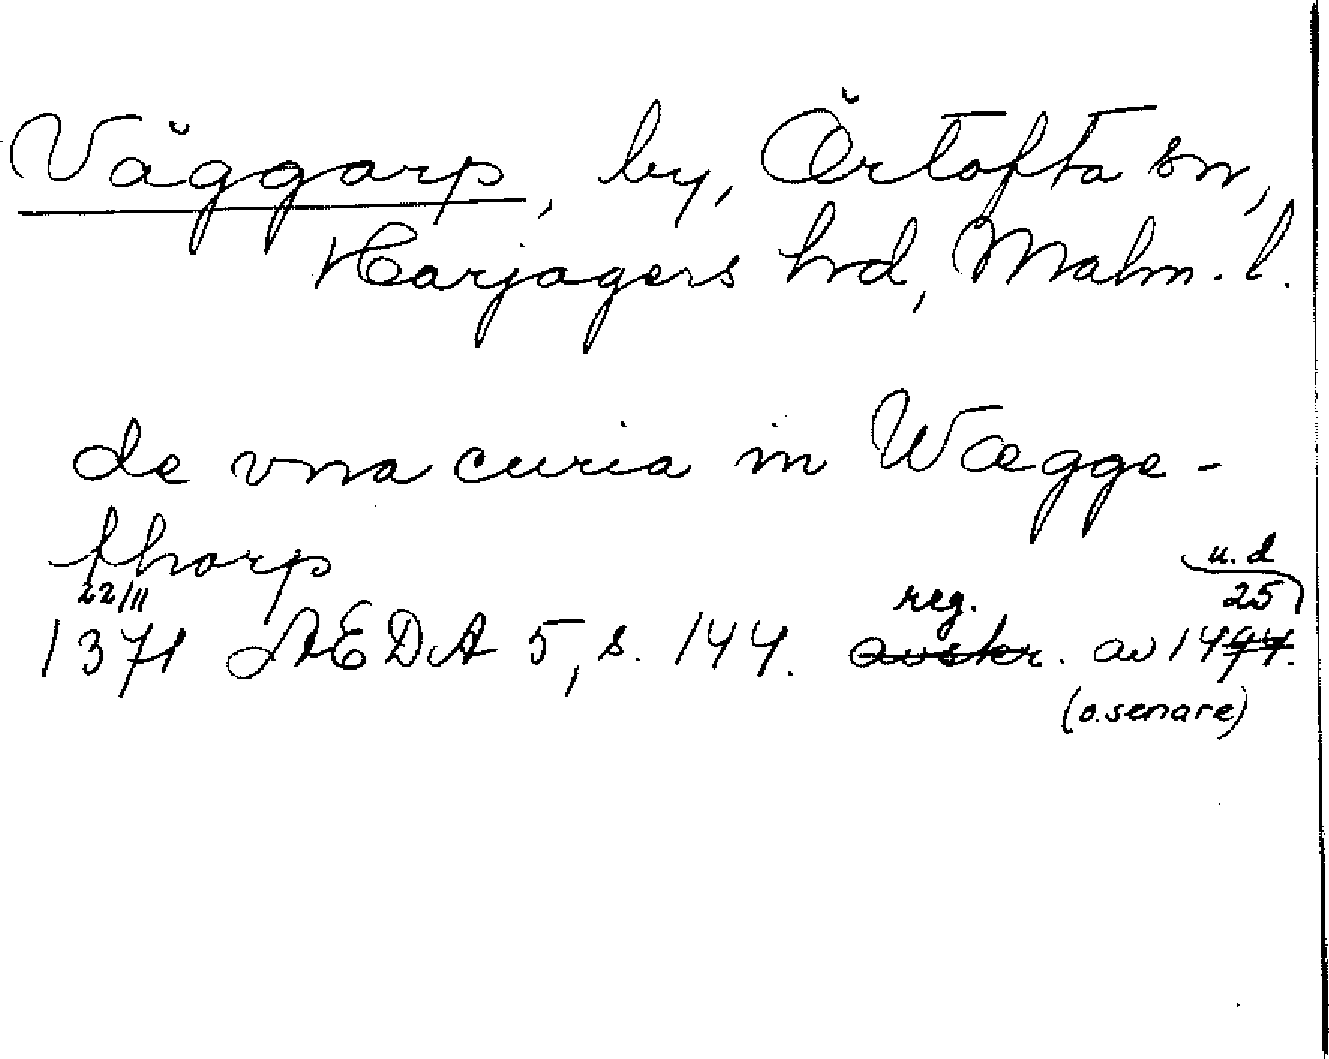 Väggarp, by, Örtofta sn,
Harjagers hd, Malm. l.
de vna curia in Wægge-
thorp
22/11 reg. u. d 25
1371 ÆDA 5, s. 144. avskr. av 1494.
(o. senare)